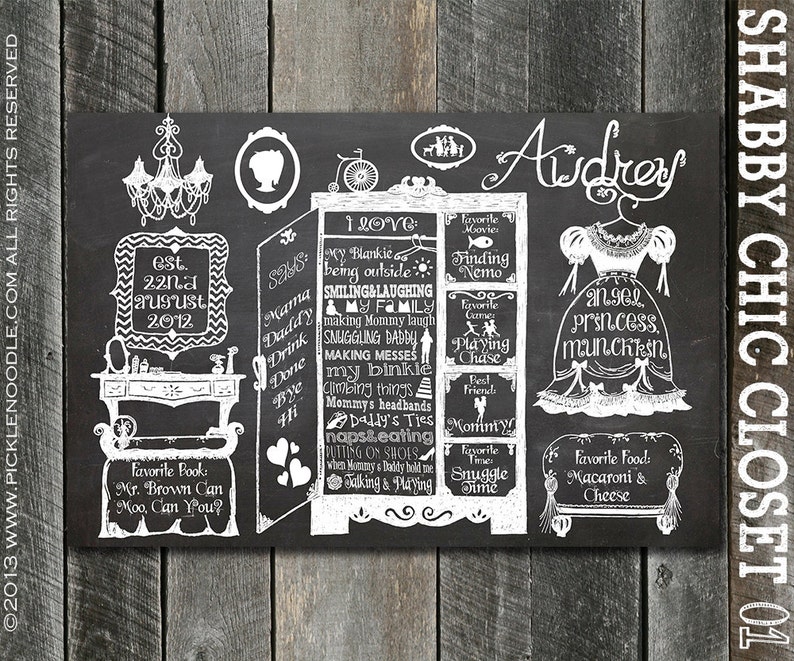 ©2013 WWW.PICKLENOODLE.COM ALL RIGHTS RESERVED
SHABBY CHIC CLOSET 01
Audrey
est.
22nd
august
2012
Favorite Book:
Mr. Brown Can
Moo, Can You?
SAYS:
Mama
Daddy
Drink
Done
Bye
Hi
I LOVE:
My Blankie
being outside
SMILING&LAUGHING
& My FAMILY
making Mommy laugh
SNUGGLING DADDY
MAKING MESSES
my binkie
Climbing things
Mommy's headbands
Daddy's Ties
naps&eating
PUTTING ON SHOES
when Mommy & Daddy hold me
Talking & Playing
Favorite
Movie:
Finding
Nemo
Favorite
Game:
Playing
Chase
Best
Friend:
Mommy!
Favorite
Time:
Snuggle
Time
angel,
princess,
munchkin
Favorite Food:
Macaroni &
Cheese